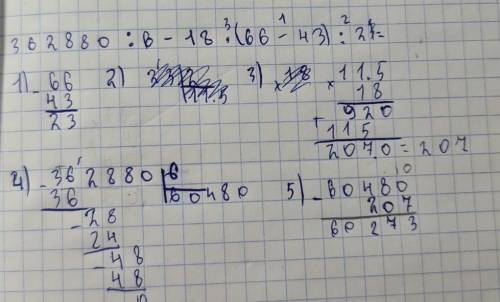 362880 : 6 - 18 : (66 - 43) : 2 =
3 1 2
1) - 66
43
23
2)
11.5
3) × 11.5
18
+ 920
115
2070 = 207
4) - 362880 6
36 60480
- 28
24
- 48
48
0
5) - 60480
207
60273
10